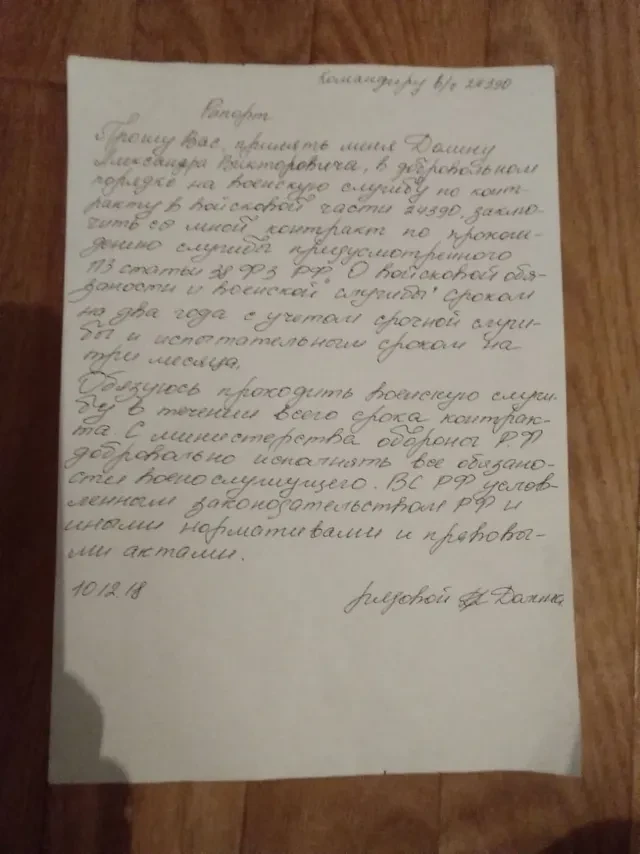 Командиру в/ч 24390
Рапорт
Прошу Вас, принять меня Долину
Александра Викторовича, в добровольном
порядке на военскую службу по конт-
ракту в войсковой части 24390. заклю-
чить со мной контракт по прохож-
дению службы предусмотренного
П3 статьи 38 ФЗ РФ. О войсковой обя-
заности и военской "службы" сроком
на два года с учетом срочной служ-
бы и испытательным сроком на
три месяца.
Обязуюсь проходить военскую служ-
бу в течении всего срока контрак-
та С министерства обороны РФ
добровально исполнять все обязано-
сти военослужущего. ВС РФ услов-
ленным законодательством РФ и
иными нормативами и правовы-
ми актами.
10 12 18 рядовой Долина